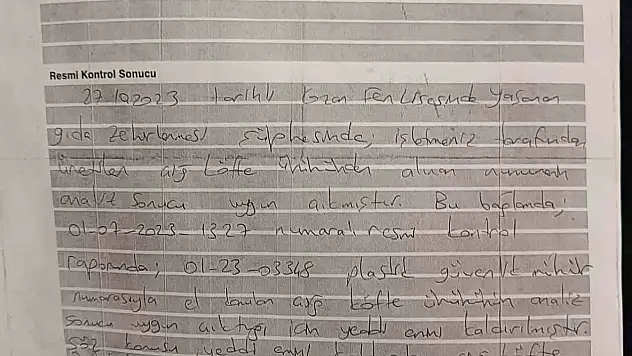 Resmi Kontrol Sonucu
27.10.2023 tarihli Ozan Fen Lisesinde yaşanan
gıda zehirlenmesi şüphesinde; işletmeniz tarafından
üretilen çiğ köfte ürününden alınan numunenin
analiz sonucu uygun çıkmıştır. Bu bağlamda;
01-07-2023-1327 numaralı resmi kontrol
raporunda; 01-23-03348 plastik güvenlik mühür
numarasıyla el konulan çiğ köfte ürününün analiz
sonucu uygun çıktığı için yeddi emin kaldırılmıştır.
Söz konusu yeddi emin